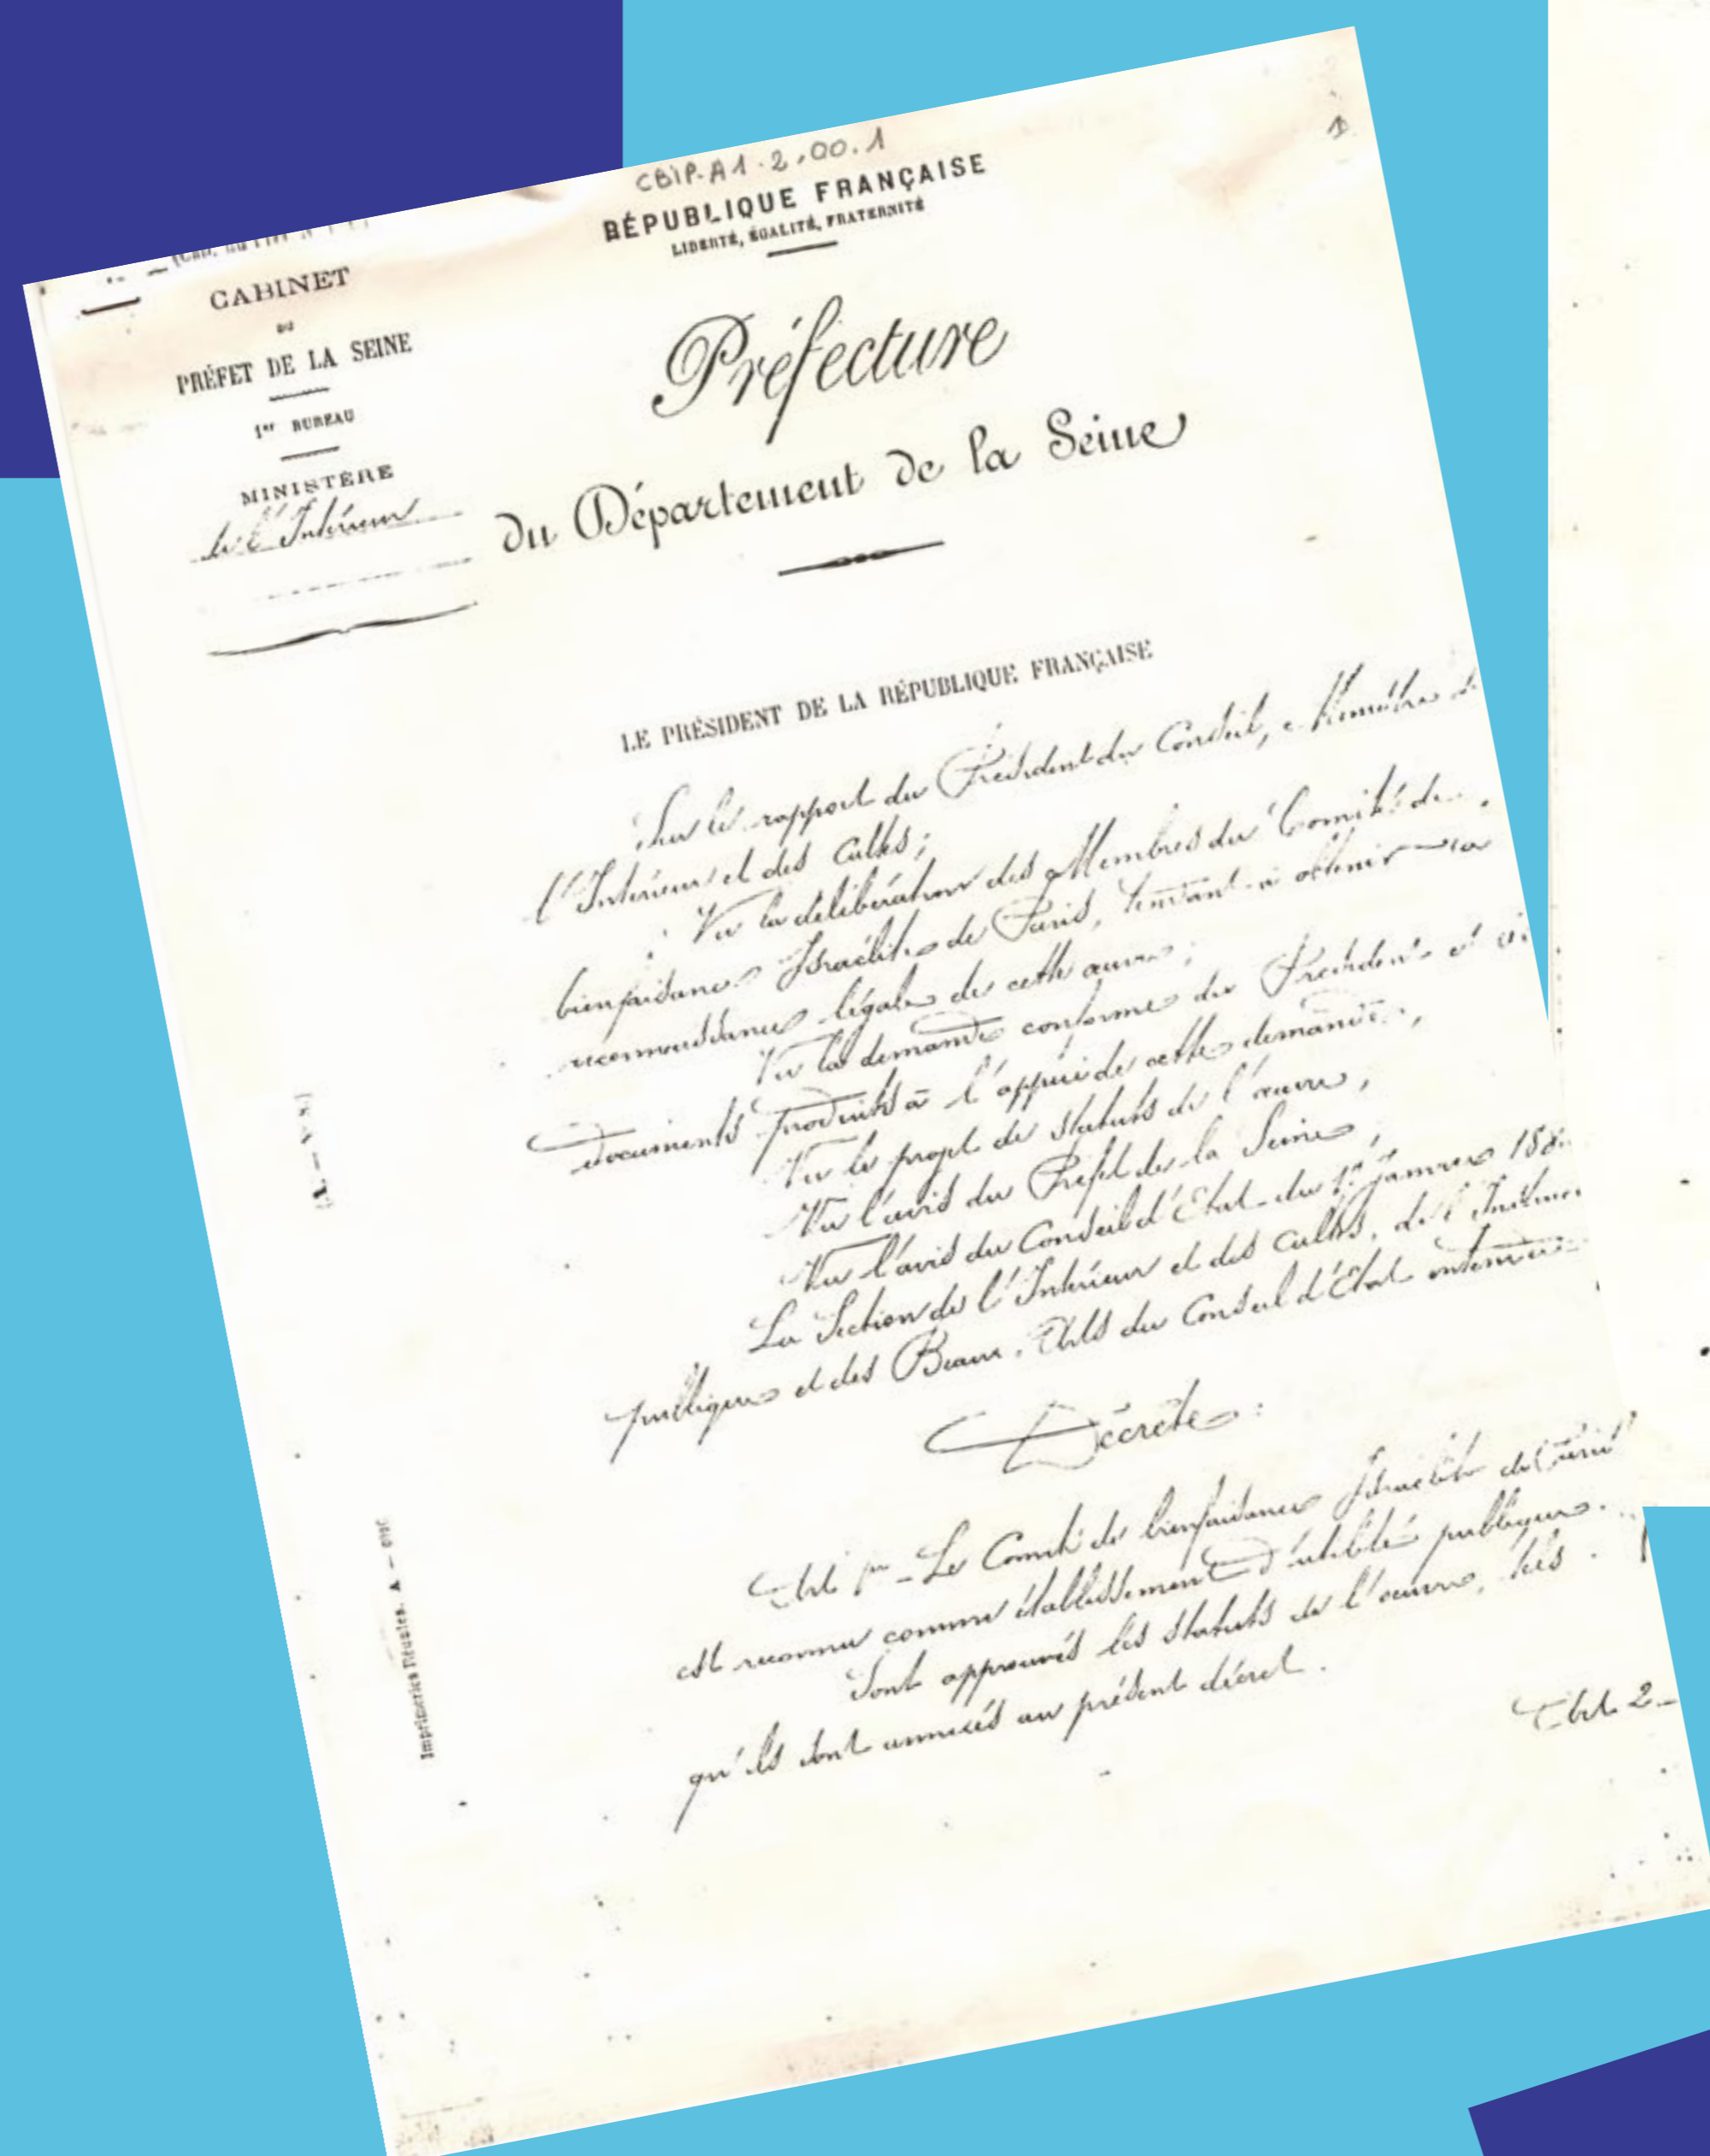 CBIP-A1-2.00.1
RÉPUBLIQUE FRANÇAISE
LIBERTÉ, ÉGALITÉ, FRATERNITÉ
CABINET
DU
PRÉFET DE LA SEINE
1er BUREAU
MINISTÈRE
de l'Intérieur
Préfecture
du Département de la Seine
LE PRÉSIDENT DE LA RÉPUBLIQUE FRANÇAISE
Sur le rapport du Président du Conseil, Ministre de
l'Intérieur et des Cultes;
Vu la délibération des Membres du Comité de
bienfaisance Israélite de Paris, tendant à obtenir la
reconnaissance légale de cette œuvre;
Vu la demande conforme du Président et
documents produits à l'appui de cette demande,
Vu le projet de statuts de l'œuvre,
Vu l'avis du Préfet de la Seine,
Vu l'avis du Conseil d'Etat du 1er Janvier
La Section de l'Intérieur et des Cultes, de l'
publique et des Beaux-Arts du Conseil d'Etat entendue
Décrète:
Art. 1er - Le Comité de bienfaisance Israélite de Paris
est reconnu comme établissement d'utilité publique.
Sont approuvés les statuts de l'œuvre, tels
qu'ils sont annexés au présent décret.
Art. 2 -
Imprimeries Réunies. A